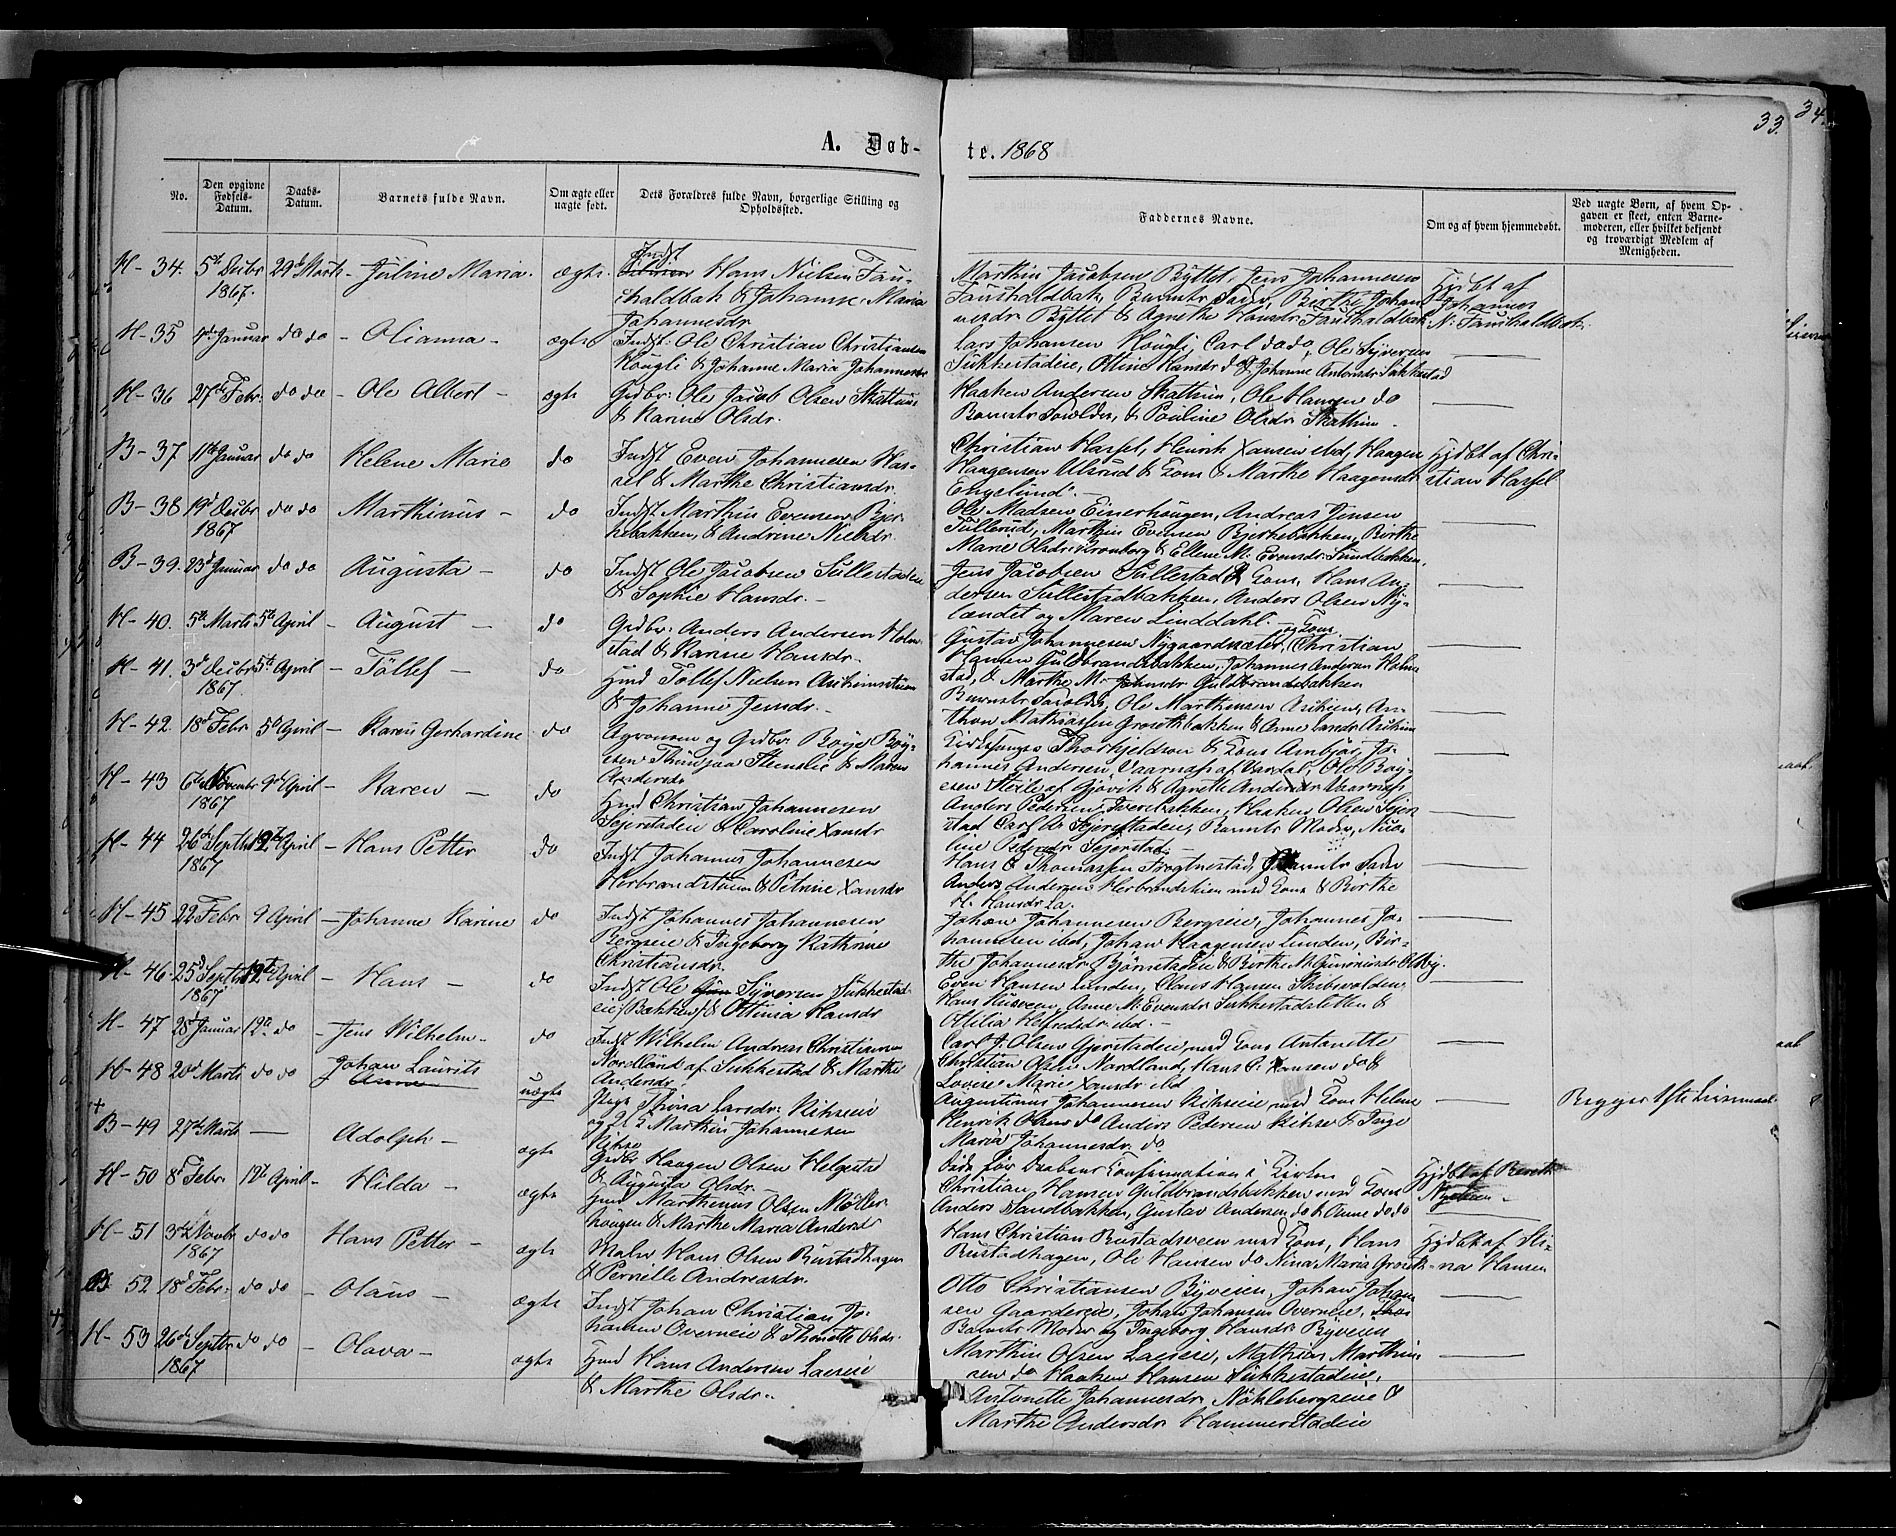 33. 34.
A. Døb-
te. 1868
No.
Den opgivne Fødsels-Datum.
Daabs-Datum.
Barnets fulde Navn.
Om ægte eller uægte født.
Dets Forældres fulde Navn, borgerlige Stilling og Opholdssted.
Faddernes Navne.
Om og af hvem hjemmedøbt.
Ved uægte Børn, af hvem Op-
gaven er skeet, enten Barne-
moderen, eller hvilket bekjendt
og troværdigt Medlem af
Menigheden.
H- 34. 5te Decbr 1867. 29de Marts - Juline Maria. ægte Indst Hans Nielsen Fau-
chaldbak & Johanne Maria
Johannesdr
Marthin Jacobsen Byttet, Jens Johannesen
Fauchaldbak, Barnets Fader, Birthe Johan-
nesdr Byttet & Agnethe Hansdr Fauchaldbak
Hjdbt af
Johannes
N. Fauchaldbak
H- 35 4de Januar do do - Olianna - ægte Indst: Ole Christian Christiansen
Hougli & Johanne Maria Johannesdr
Lars Johansen Hougli, Carl do do, Ole Syversen
Sukkestadeie, Ottine Hansdr do & Johanne Antonsdr Sukkestad
H- 36 27de Febr: do do - Ole Albert - ægte Grdbr: Ole Jacob Olsen Skattum
& Karine Olsdr.
Haaken Andersen Skattum, Ole Hansen do
Barnets Forældre, & Pauline Olsdr Skattum.
B- 37 11te Januar do do Helene Marie do Indst Even Johannesen Has-
sel & Marthe Christiansdr.
Christian Hassel, Henrik Hansen ibd, Haagen
Haagensen Ulsrud & Kone & Marthe Haagensdr
Engelund.
Hjdbt af Chri-
stian Hassel
B- 38 19d Decbr 1867 do do Marthinus - do Indst Marthin Evensen Bjer-
kebakken, & Andrine Nielsdr.
Ole Madsen Einerhougen, Andreas Jensen
Tullerud, Marthin Evensen Bjerkebakken, Birthe
Marie Olsdr Kronborg & Ellene M. Evensdr Sundbakken.
B- 39. 23d Januar do do Augusta - do Indst Ole Jacobsen Sullestadeie
& Sophie Hansdr. -
Jens Jacobsen Sullestad & Kone, Hans An-
dersen Sullestadbakken, Anders Olsen Ny-
lændet og Maren Linddahl. -
H- 40. 5te Marts 5te April - August - do Grdbr: Anders Andersen Holm-
stad & Karine Hansdr.
og Kone
Gustav Johannesen Nygaardsæter, Christian
Hansen Guldbrandsbakken, Johannes Andersen Holm-
stad, & Marthe M. Johnsdr Guldbrandsbakken
H- 41. 3d Decbr 1867 5te April - Tollef - do Hmd Tollef Nielsen
& Johanne Jensdr. -
Barnets Forældre, Ole Marthinsen, An-
thon Mathiassen Grosethbakken & Anne Larsdr
H- 42. 18d Febr 5te April - Karen Gerhardine do Agronom og Grdbr: Boye Boy-
esen & Maren
Andersdr
Kirkesanger Thorkjeldson & Kone Anbjør, Jo-
hannes Andersen, Vaarnæss af Vardal, Ole Boy-
esen af Gjøvik & Agnethe Andersdr Vaarnæss
H- 43 6te Novembr 1867 9de April - Karen - do Hmd Christian Johannesen
Sejerstadeie & Caroline Hansdr
Anders Pedersen Iversbakken, Haaken Olsen Sejer-
stad Carl A. Sejerstadeie, Barnets Moder, Nico-
line Pedersdr Sejerstad
H- 44 26de Septbr 1867 12te April - Hans Petter do Indst Johannes Johannesen
Herbrandstuen & Petrine Hansdr
Hans & Thomassen Frogtnestad, Barnets Fader
Anders Andersen Herbrandstuen med Kone & Berthe
H. Hansdr
H- 45 22 Febr 9 April - Johanne Karine do Indst Johannes Johannesen
Bergseie & Ingeborg Kathrine
Christiansdr.
Johan Johannesen Bergseie, Johannes Jo-
hannesen ibd, Johan Haagensen Lunden, Bir-
the Johannesdr Bjørnstadeie & Birthe M. Gunerusdr
H- 46. 25d Septbr 1867 12te April - Hans - do Indst Ole Syversen Sukkestad-
eie, Bakken, & Ottinia Hansdr
Even Hansen Lunden, Claus Hansen Skibsvolden,
Hans Husveen, Anne M. Evensdr Sukkestadsletten &
Othilia Helfredsdr ibd. -
H- 47 28d Januar 12te do - Jens Wilhelm - do Indst Wilhelm Andreas Christiansen
Nordlund af Sukkestad & Marthe
Andersdr
Carl J. Olsen Gjerstadeie med Kone Antonette
Christian Olsen Nordland, Hans P. Hansen do &
Lovise Marie Hansdr ibd
H- 48 20d Marts do do - Johan Laurits uægte Pige Thrina Larsdr: Kihseie
og Marthin Johannesen
Kihse
Augustinus Johannesen Kihseie med Kone Helene
Henrik Olsen do Anders Pedersen Kihse & Inge
Maria Johannesdr do
Begges 1ste Leiermaal
+
B- 49 27de Marts - Adolph - ægte Grdbr Haagen Olsen Helgestad
& Augusta Olsdr -
Døde før Daabens Confirmation i Kirken
Hjdbt af
H- 50 8d Febr 12te April - Hilda - ægte Hmd Marthinius Olsen Møller-
hougen & Marthe Maria Andersdr
Christian Hansen Guldbrandsbakken med Kone
Anders Sandbakken, Gustav Andersen do & Anne do do
H- 51 3die Novbr 1867 do do Hans Petter - ægte Maler Hans Olsen Rustadhagen
& Pernille Andreasdr.
Hans Christian Rustadsveen med Kone, Hans
Rustadhagen, Ole Hansen do Nina Maria Groseth
Hjdbt af Sti-
na Hansen
B- 52 18d Febr: do do - Olaus - ægte Indst Johan Christian Jo-
hansen Overneie & Thonette Olsdr
Otto Christiansen Byveien, Johan Johan-
sen Gaardereie, Johan Johansen Overneie,
Barnets Moder og Ingeborg Hansdr Byveien
H- 53 26de Septbr 1867 do do - Olava - ægte Hmd Hans Andersen Laeseie
& Marthe Olsdr.
Marthin Olsen Laeseie, Mathias Marthin-
sen do Haaken Hansen Sukkestadeie,
Antonette Johannesdr Nøklebergseie &
Marthe Andersdr Hammerstadeie